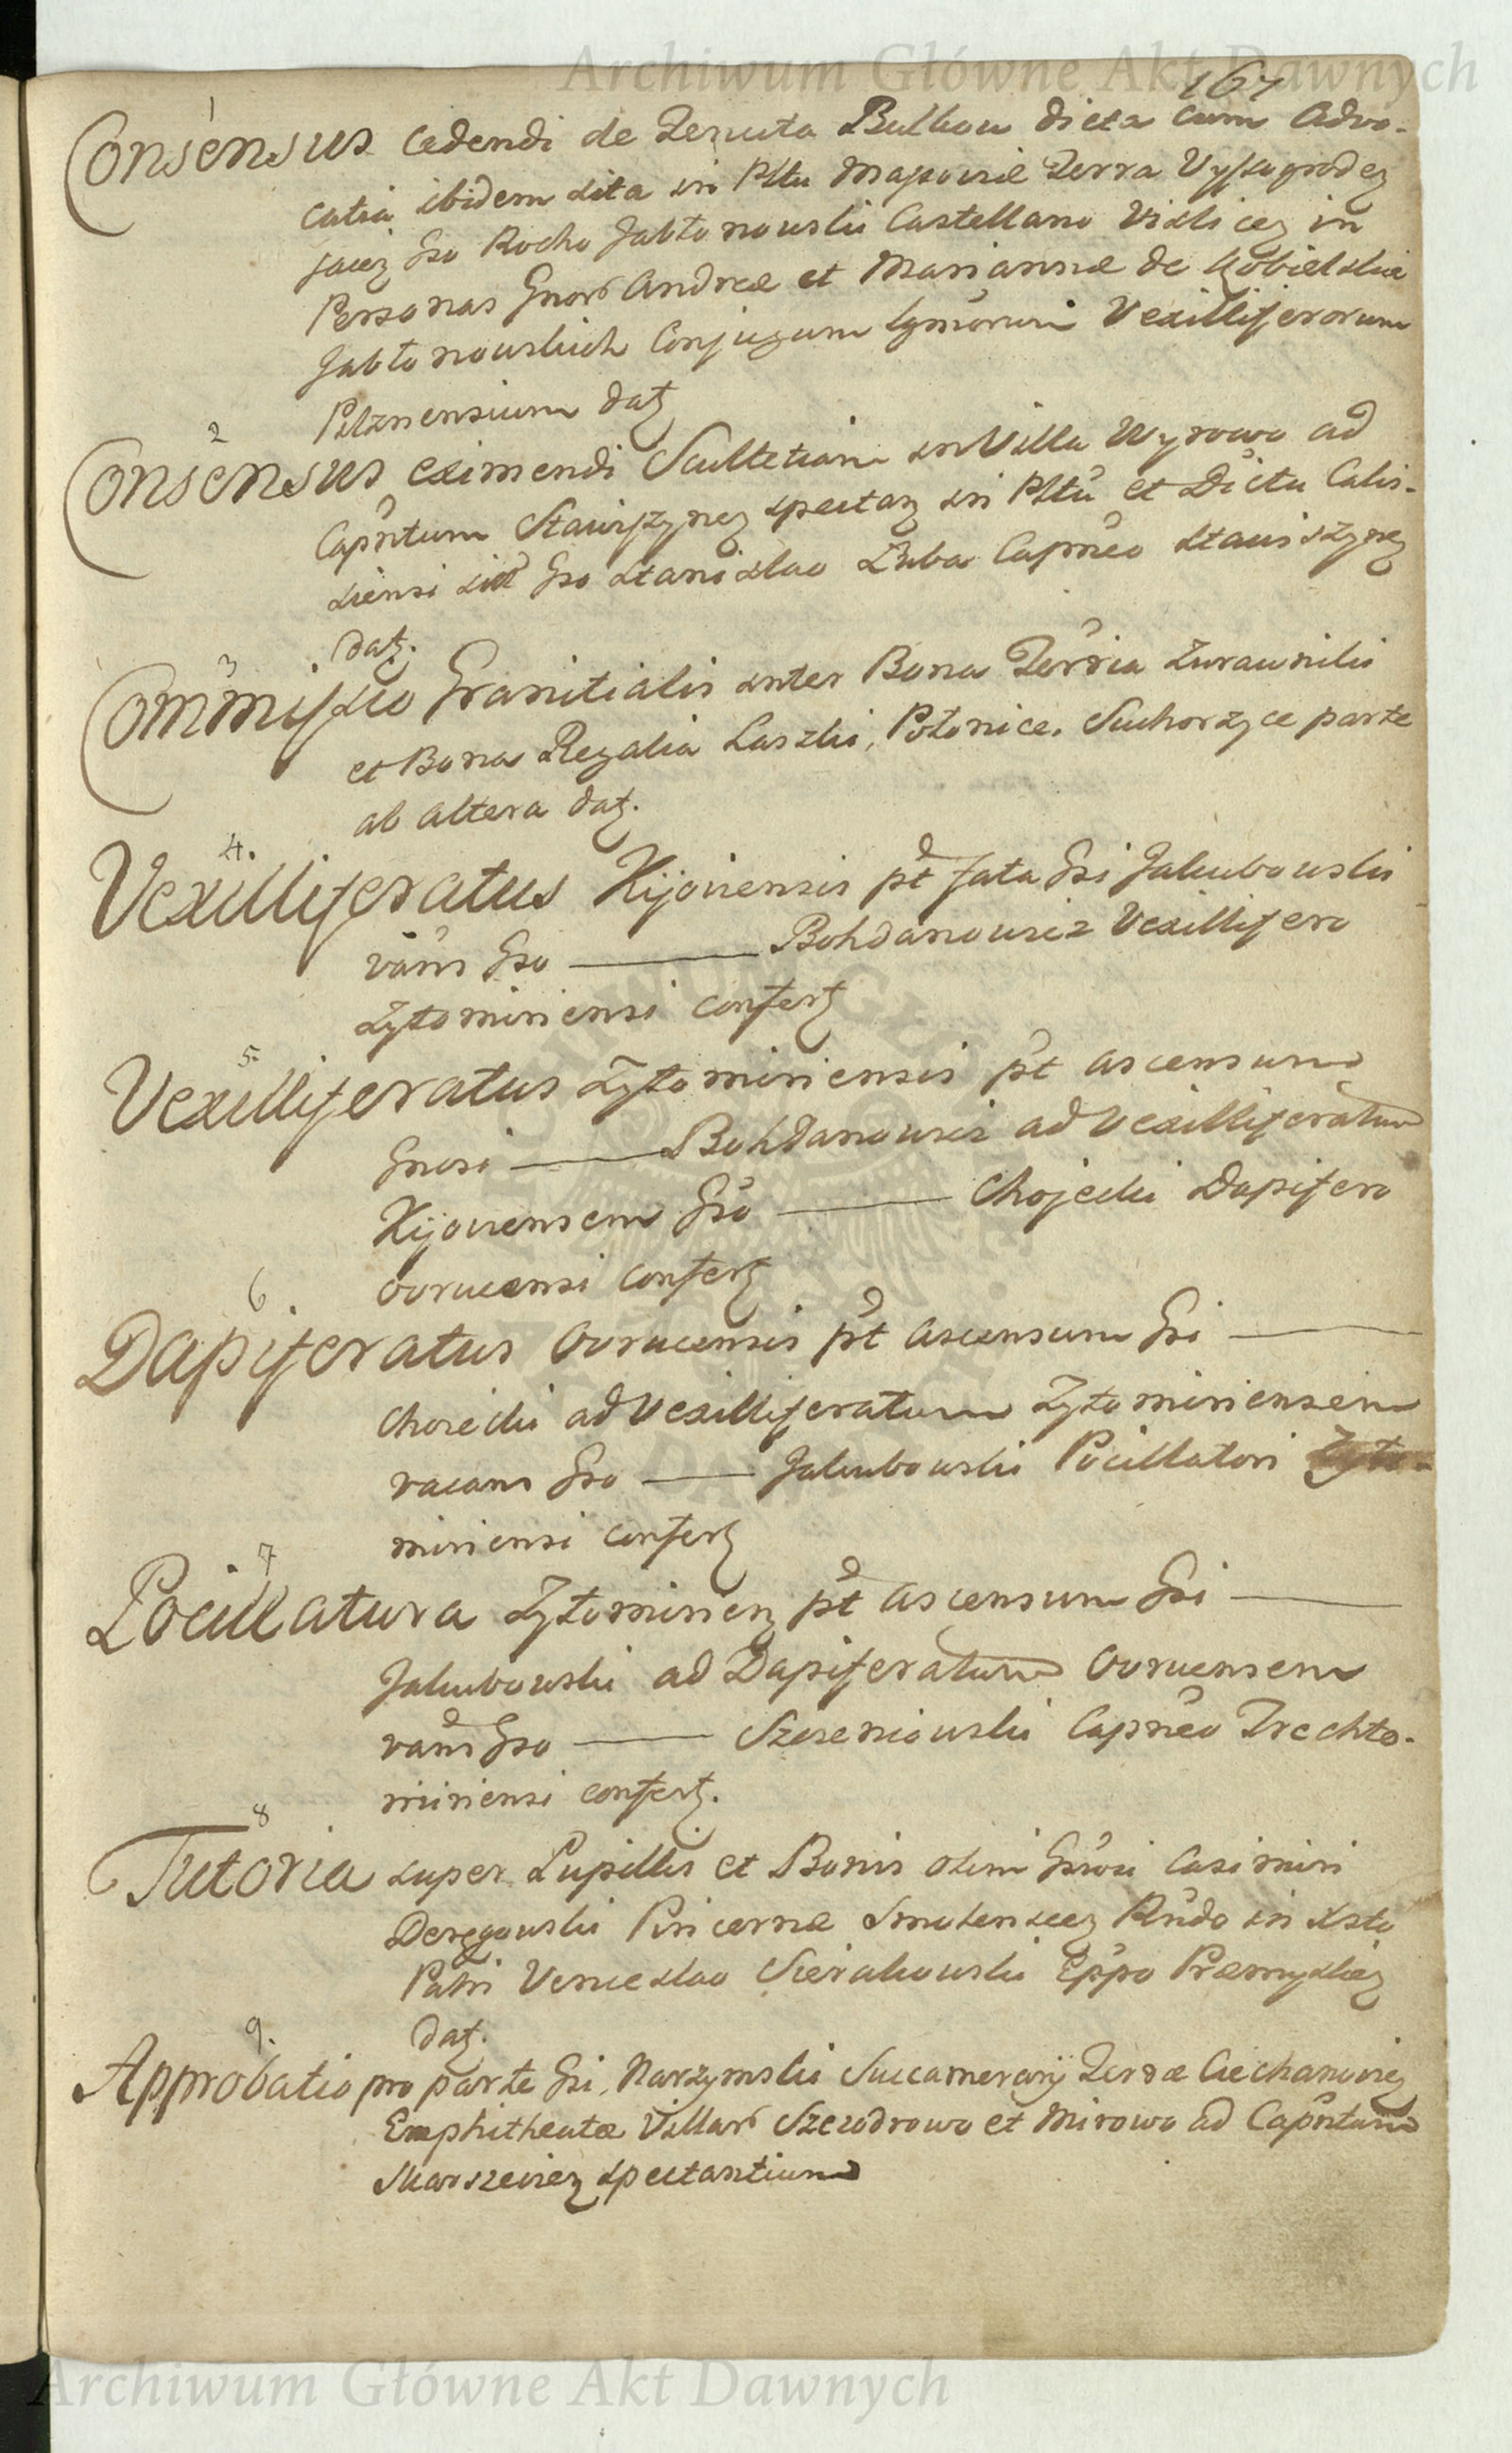 Archiwum Główne Akt Dawnych
167
1
Consensus cedendi de Tenuta Bulkow dicta cum Advo-
catia ibidem sita in Pltu Mazoviæ Terra Vyssogrodez
jacez Gso Rocho Jabłonowski Castellano Vislicez in
Personas Gnorû Andreæ et Mariannæ de Kobielskie
Jabłonowskich Conjugum Vexilliferorum
Pilznensium datz
2
Consensus eximendi Scultetiam in Villa Wyrowo ad
Capntum Stawiszynez spectaz in Pltu et Dictu Calis-
siensi sit Gso Stanislao Zuba Capneo Stawiszynez
datz.
3
Commissio Granitialis inter Bona Terria Zurawniki
et Bona Regalia Laszki, Położnice, Suchorzyce parte
ab altera datz.
4.
Vexilliferatus Kijoviensis pt fata Gsi Jakubowski
vans Gso ——— Bohdanowicz Vexillifero
Zytomiriensi confertz
5.
Vexilliferatus Zytomiriensis pt ascensum
Gnosi ——— Bohdanowicz ad Vexilliferatum
Kijoviensem Gso ——— Chojecki Dapifero
Ovrucensi confertz
6
Dapiferatus Ovrucensis pt ascensum Gsi ———
Choiecki ad Vexilliferatum Zytomiriensem
vacans Gso ——— Jakubowski Pocillatori Zyto-
miriensi confertz
7
Pocillatura Zytomiriez pt ascensum Gsi ———
Jakubowski ad Dapiferatum Ovrucensem
vans Gso ——— Szczeniowski Capneo Trechto-
miriensi confertz.
8
Tutoria super Pupillis et Bonis olim Gnosi Casimiri
Deręgowski Pincernæ Smolenscez Rndo in Xsto
Patri Venceslao Sierakowski Eppo Præmysliez
datz.
9.
Approbatio pro parte Gsi Narzymski Succamerarij Terræ Ciechanoviez
Emphitheutæ Villarû Szczodrowo et Mirowo ad Capntum
Skarszeviez spectantium
Archiwum Główne Akt Dawnych